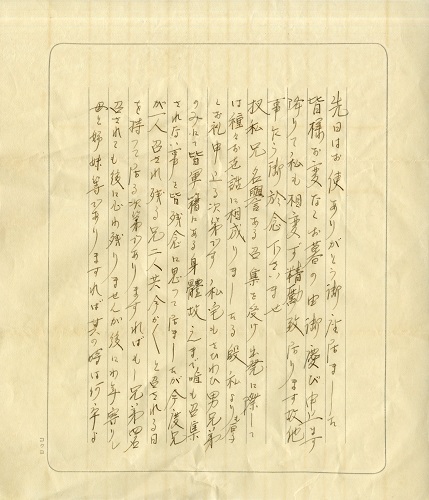 先日はお便ありがとう御座居ました
皆様お変なくお暮の由御慶び申上ます
降りて私も相変ず精勤致居ります故他
事たう御放念下さいませ
扨私兄名誉ある召集を受け出発に際して
は種々お世話に相成りましたる段私よりも厚
くお礼申上る次第です 私宅もさひわひ男兄弟
のみにて皆軍籍にある身體故今まで唯も召集
されない事と皆残念に思って居ましたが今度兄
が一人召され残る兄二人共今かくと召される日
を持って居る次第でありますればもし兄弟四名
召されても後に心わ残りませんが後にわ年寄りし
母と姉妹等でありますれば其の時は何卒よ